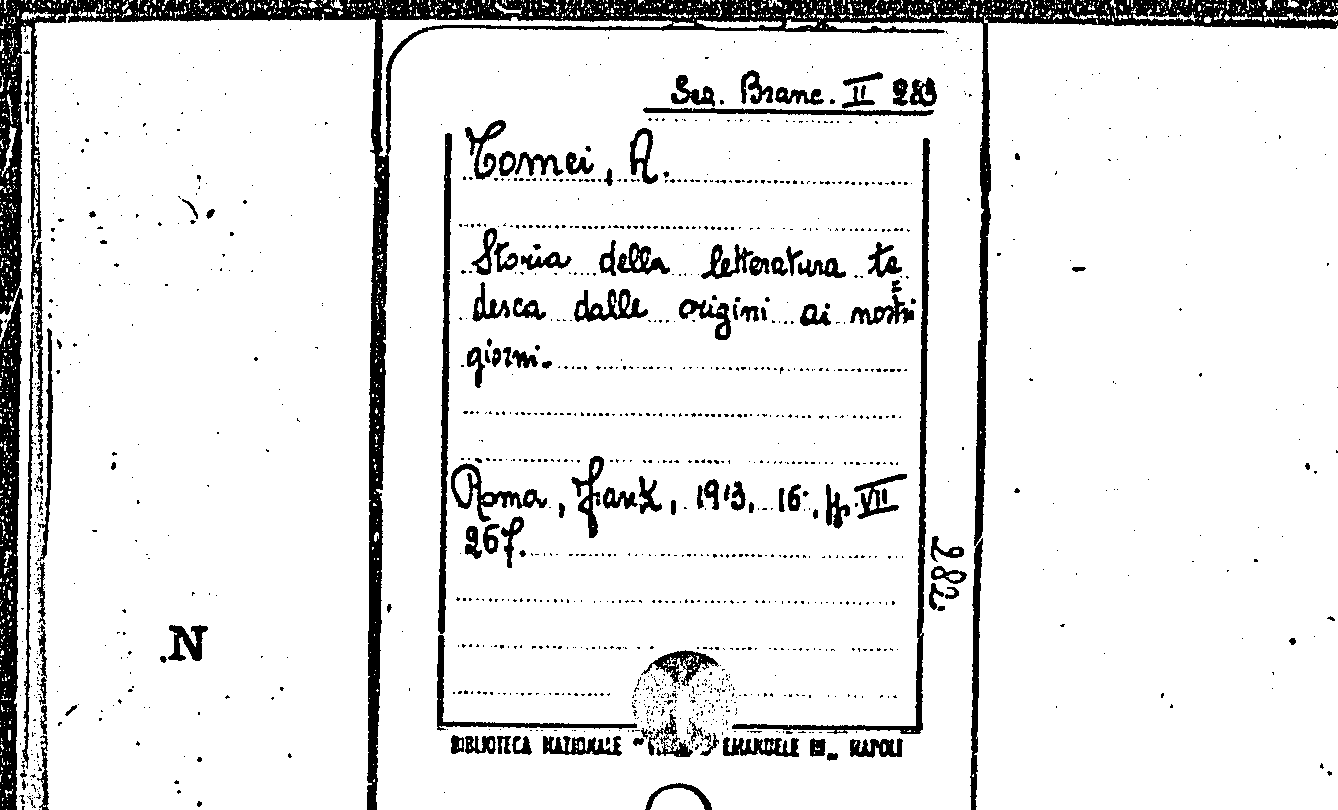 Sez. Branc. II 283
Tomei, A.
Storia della letteratura te
desca dalle origini ai nostri
giorni.
Roma, 1913, 16°, pp. VII
267.
282
N
BIBLIOTECA NAZIONALE EMANUELE III„ NAPOLI